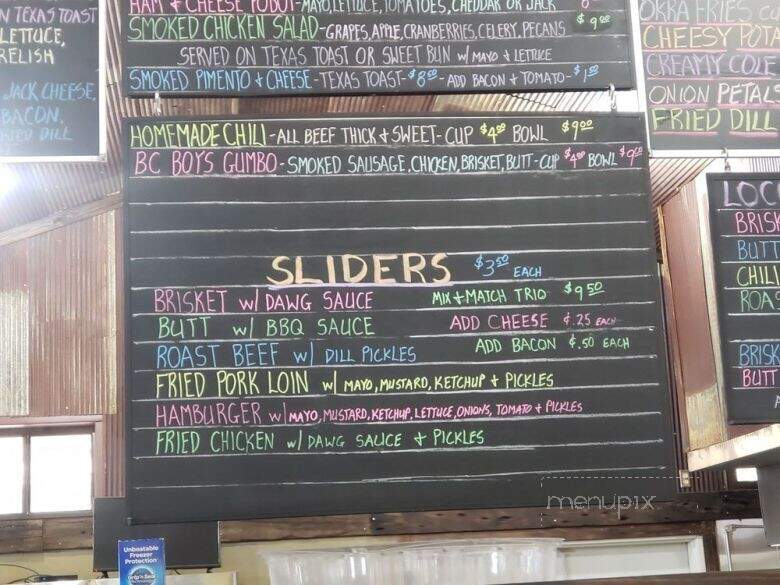 N TEXAS TOAST
LETTUCE,
RELISH
JACK CHEESE,
BACON,
FRIED DILL
HAM & CHEESE POBOY-MAYO, LETTUCE, TOMATOES, CHEDDAR OR JACK
SMOKED CHICKEN SALAD-GRAPES, APPLE, CRANBERRIES, CELERY, PECANS $9.00
SERVED ON TEXAS TOAST OR SWEET BUN W/ MAYO & LETTUCE
SMOKED PIMENTO & CHEESE-TEXAS TOAST-$8.00-ADD BACON & TOMATO-$1.50
HOMEMADE CHILI-ALL BEEF THICK & SWEET-CUP $4.00 BOWL $9.00
BC BOYS GUMBO-SMOKED SAUSAGE, CHICKEN, BRISKET, BUTT-CUP $4.00 BOWL $9.00
SLIDERS $3.50 EACH
BRISKET W/ DAWG SAUCE MIX & MATCH TRIO $9.50
BUTT W/ BBQ SAUCE ADD CHEESE $.25 EACH
ROAST BEEF W/ DILL PICKLES ADD BACON $.50 EACH
FRIED PORK LOIN W/ MAYO, MUSTARD, KETCHUP & PICKLES
HAMBURGER W/ MAYO, MUSTARD, KETCHUP, LETTUCE, ONIONS, TOMATO & PICKLES
FRIED CHICKEN W/ DAWG SAUCE & PICKLES
OKRA FRIES
CHEESY POTA
CREAMY COLE
ONION PETALS
FRIED DILL
LOC
BRISK
BUTT
CHILI
ROAS
BRISK
BUTT
menupix
Unbeatable
Freezer
Protection